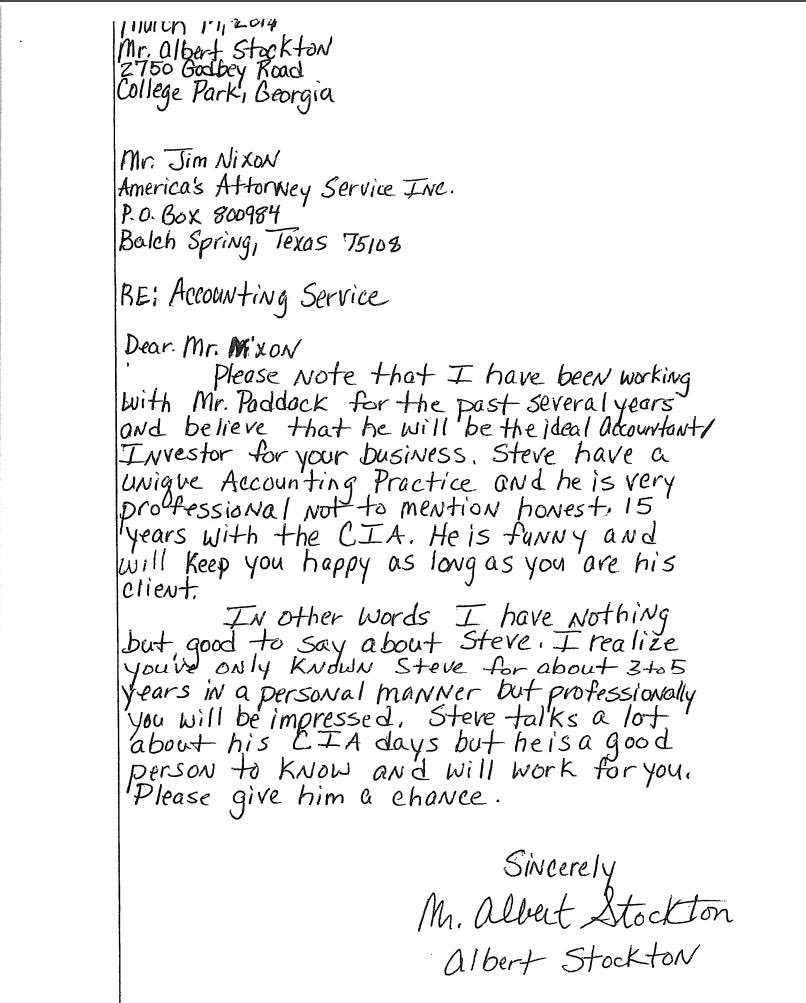 March 17, 2014
Mr. Albert Stockton
2750 Godbey Road
College Park, Georgia
Mr. Jim Nixon
America's Attorney Service Inc.
P.O. Box 800984
Balch Spring, Texas 75108
RE: Accounting Service
Dear. Mr. Nixon
Please note that I have been working
with Mr. Paddock for the past several years
and believe that he will be the ideal Accountant/
Investor for your business. Steve have a
unique Accounting Practice and he is very
professional not to mention honest, 15
years with the CIA. He is funny and
will keep you happy as long as you are his
client.
In other words I have nothing
but good to say about Steve. I realize
you've only known Steve for about 3 to 5
years in a personal manner but professionally
you will be impressed. Steve talks a lot
about his CIA days but he is a good
person to know and will work for you.
Please give him a chance.
Sincerely
M. Albert Stockton
Albert Stockton